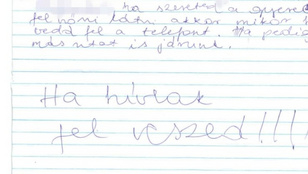 ha szeretsz a gyerek
fel,
akkor mikor
vedd fel a telefont. Ha pedig
más utat is járunk.
Ha hívlak
fel veszed!!!